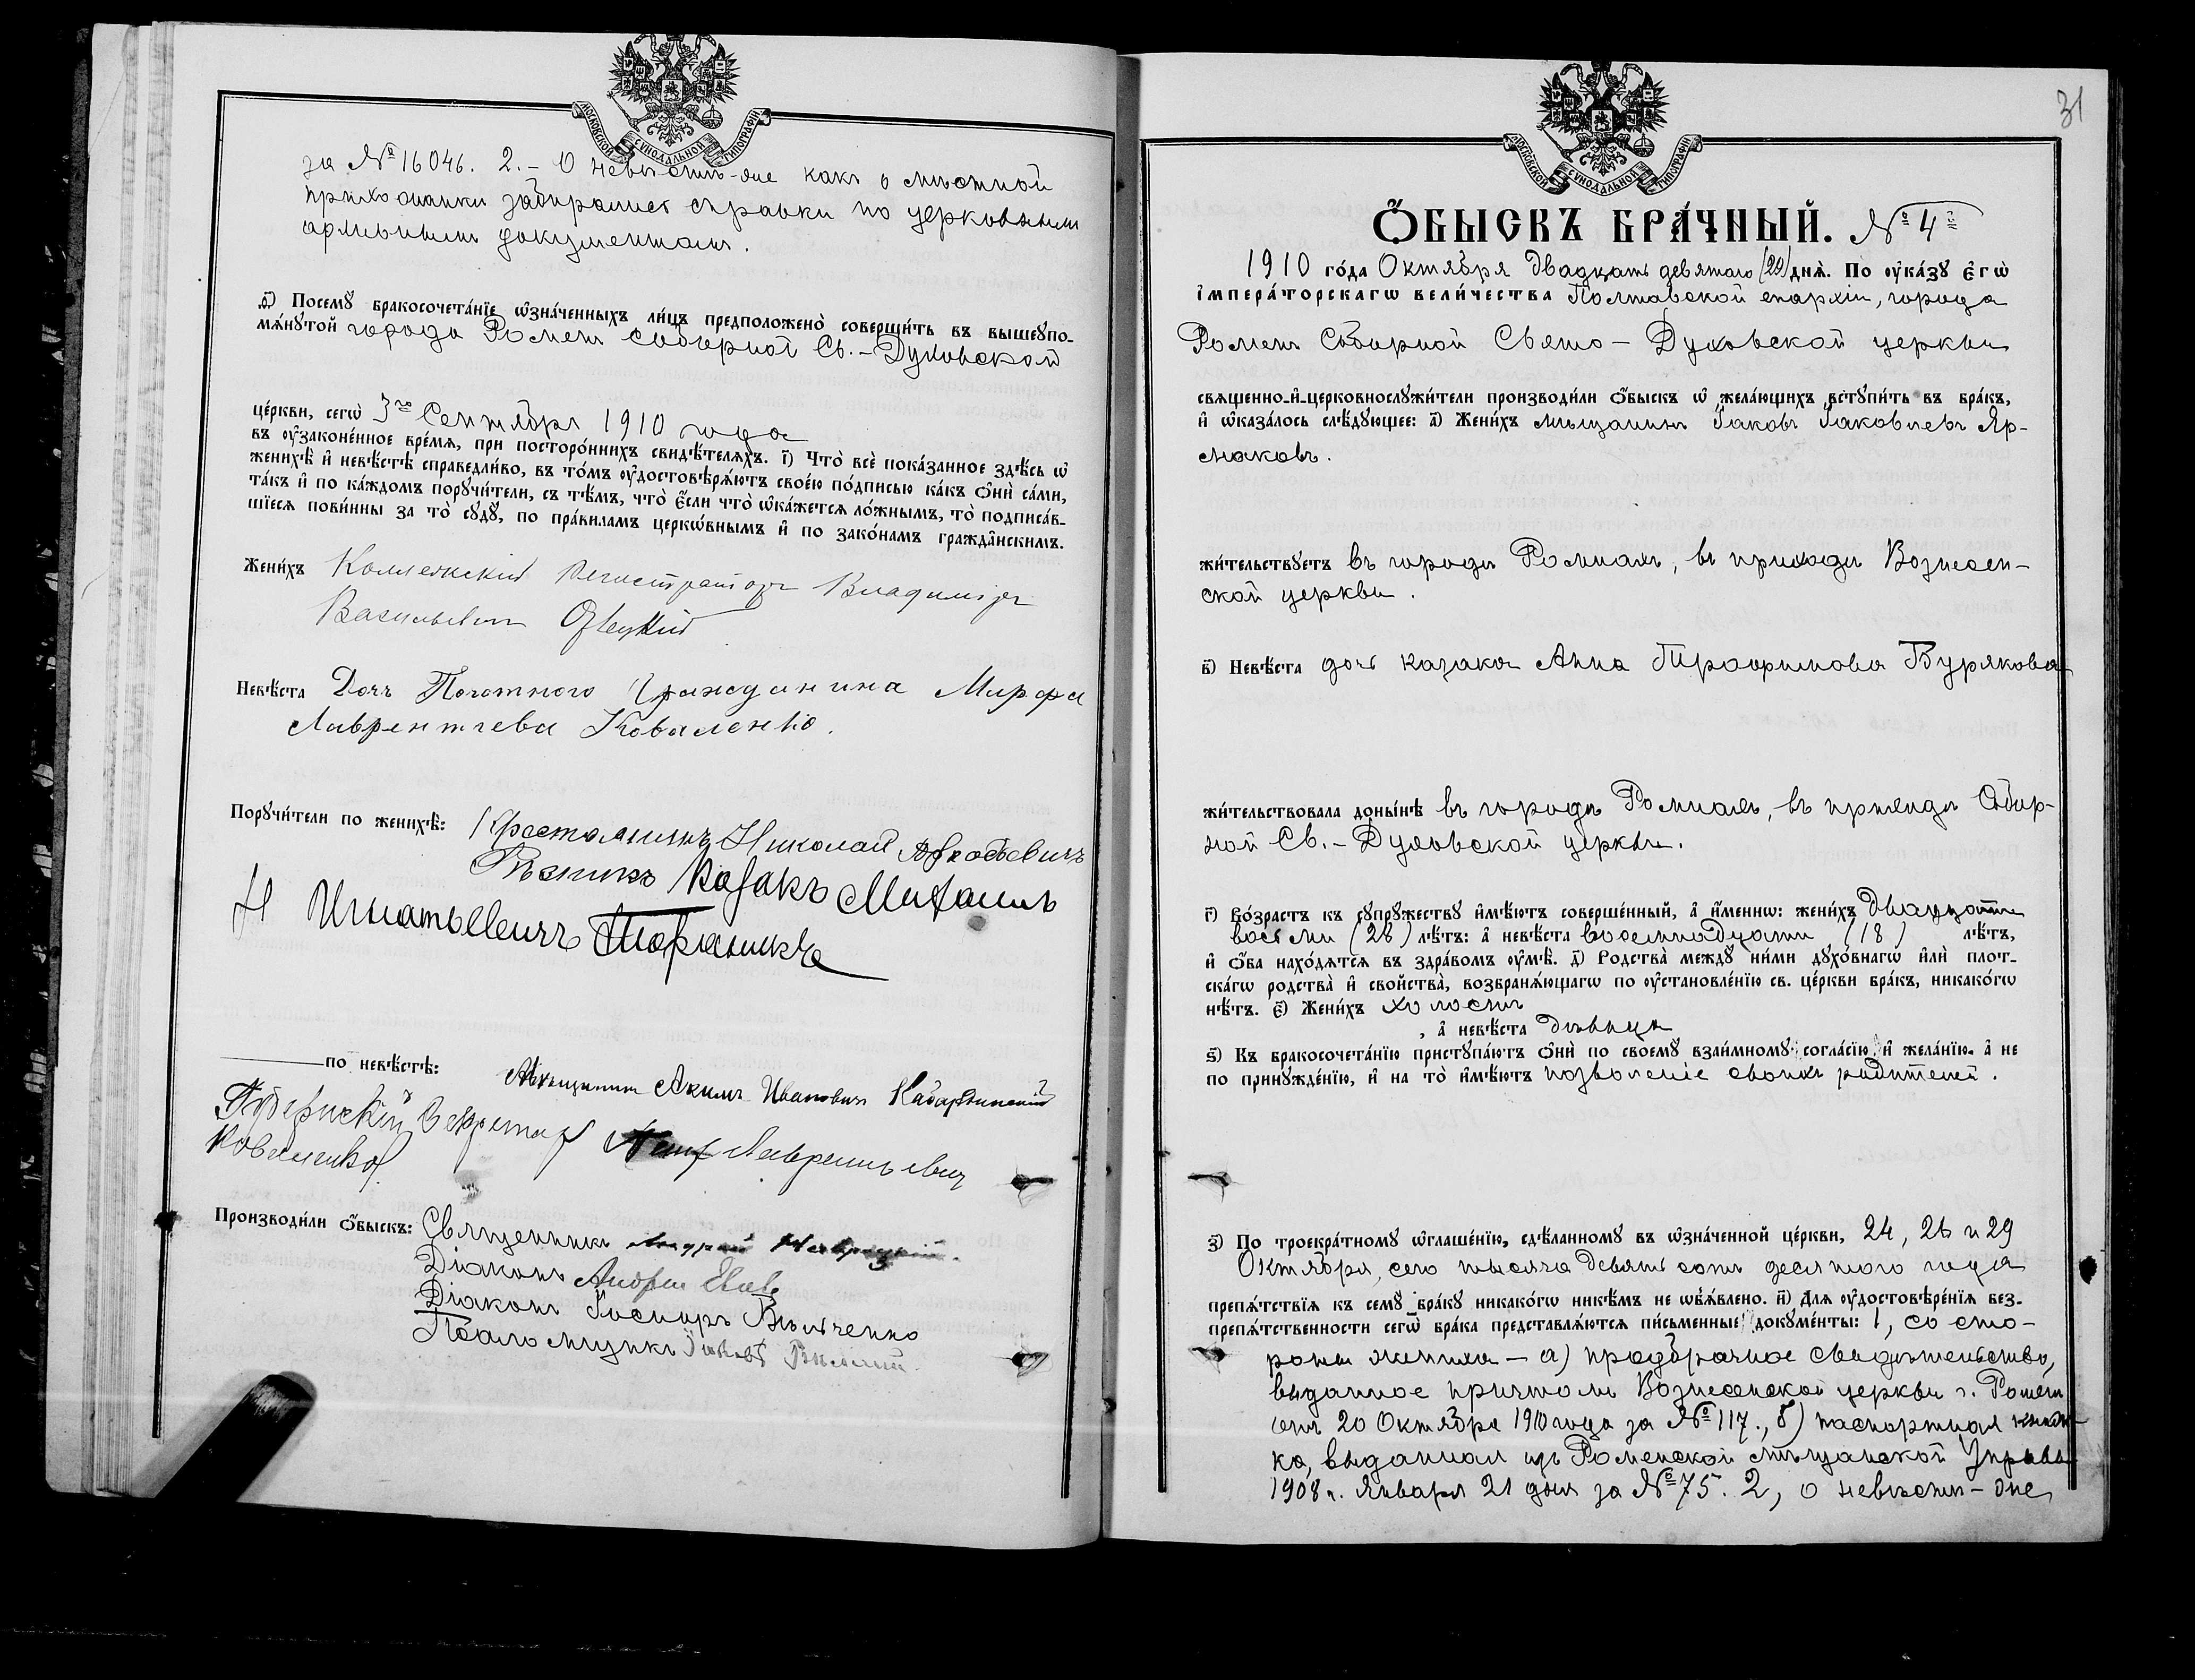 МОСКОВСКОЙ СѴНОДАЛЬНОЙ ТИПОГРАФІИ
за № 16046. 2.– О невѣстѣ-же какъ о мѣстной
прихожанки забирались справки по церковнымъ
архивнымъ документамъ.
ѳ҃) Посемꙋ бракосочета́нїе ѡ҆зна́ченныхъ ли́цъ предположено̀ соверши́ть въ вышеꙋпо-
мѧ́нꙋтой города Роменъ соборной Св.–Духовской
це́ркви, сегѡ̀ 3го Сентября 1910 года
въ ᲂу҆законе́нное вре́мѧ, при посторо́ннихъ свидѣ́телѧхъ. і҃) Что̀ всѐ пока́занное здѣ́сь ѡ҆
женихѣ̀ и҆ невѣ́стѣ справедли́во, въ то́мъ ᲂу҆достовѣрѧ́ютъ свое́ю по́дписью ка́къ ѻ҆нѝ са́ми,
та́къ и҆ по ка́ждомъ порꙋчи́тели, съ тѣ́мъ, что̀ є҆́сли что̀ ѡ҆ка́жетсѧ ло́жнымъ, то̀ подписа́в-
шїесѧ пови́нны за то̀ сꙋдꙋ̀, по пра́виламъ церко́внымъ и҆ по зако́намъ гражда́нскимъ.
Жени́хъ Коллежскій Регистраторъ Владиміръ
Васильевичъ
Невѣ́ста Дочь Почотного Гражданина Марфа
Лаврентьева Коваленко.
Порꙋчи́тели по женихѣ̀: Крестьянинъ Николай
Рѣзникъ Казакъ Михаилъ
Игнатьевичъ
по невѣ́стѣ: Мѣщанинъ Акимъ Ивановичъ Кабардинскій
Губернскій Секретарь Лаврентьевич
Коваленко
Производи́ли ѻ҆́быскъ: Священникъ
Діаконъ Андрей
Діаконъ
Псаломщикъ
31
МОСКОВСКОЙ СѴНОДАЛЬНОЙ ТИПОГРАФІИ
Ѻ҆́БЫСКЪ БРА́ЧНЫЙ. № 4й
1910 го́да Октября двадцать девятаго (29) днѧ̀. По ᲂу҆ка́зꙋ є҆гѡ̀
і҆мпера́торскагѡ вели́чества Полтавской епархіи, города
Роменъ Соборной Свято–Духовской церкви
свѧщенно-и҆-церковнослꙋжи́тели производи́ли ѻ҆́быскъ ѡ҆ жела́ющихъ встꙋпи́ть въ бра́къ,
и҆ ѡ҆каза́лось слѣ́дꙋющее: а҃) Жени́хъ мѣщанинъ Іаковъ Іаковлевъ Яр-
маковъ.
жи́тельствꙋетъ въ городѣ Ромнахъ, въ приходѣ Вознесен-
ской церкви.
в҃) Невѣ́ста дочь казака Анна Трофимова Бурякова
жи́тельствовала доны́нѣ въ городѣ Ромнахъ, въ приходѣ Собор-
ной Св.–Духовской церкви.
г҃) Во́зрастъ къ сꙋпрꙋ́жествꙋ и҆мѣ́ютъ соверше́нный, а҆ и҆́меннѡ: жени́хъ двадцати
восьми (28) лѣ́тъ: а҆ невѣ́ста восемнадцати (18) лѣ́тъ,
и҆ ѻ҆́ба нахо́дѧтсѧ въ здра́вомъ ᲂу҆мѣ̀. д҃) Родства̀ междꙋ̀ ни́ми дꙋхо́внагѡ и҆лѝ плот-
ска́гѡ родства̀ и҆ сво́йства̀, возбранѧ́ющагѡ по ᲂу҆становле́нїю св. це́ркви бра́къ, никако́гѡ
нѣ́тъ. є҃) Жени́хъ холостъ
, а҆ невѣ́ста дѣвица
ѕ҃) Къ бракосочета́нїю пристꙋпа́ютъ ѻ҆нѝ по своемꙋ̀ взаи́мномꙋ согла́сїю и҆ жела́нїю, а҆ не
по принꙋжде́нїю, и҆ на то̀ и҆мѣ́ютъ позволеніе своихъ родителей.
з҃) По троекра́тномꙋ ѡ҆глаше́нїю, сдѣ́ланномꙋ въ ѡ҆зна́ченной це́ркви, 24, 26 и 29
Октября, сего тысяча девять сотъ десятого года
препѧ́тствїѧ къ семꙋ̀ бра́кꙋ никако́гѡ никѣ́мъ не ѡ҆б̾ѧ́влено. и҃) Длѧ ᲂу҆достовѣре́нїѧ без-
препѧ́тственности сегѡ̀ бра́ка представлѧ́ютсѧ пи́сьменные докꙋме́нты: 1, со сто-
роны жениха – а) предбрачное свидѣтельство,
выданное причтомъ Вознесенской церкви г. Роменъ
отъ 20 Октября 1910 года за № 117., б) паспортная книж-
ка, выданная изъ Роменской мѣщанской Управы
1908 г. Января 21 дня за № 75. 2, о невѣстѣ – же,